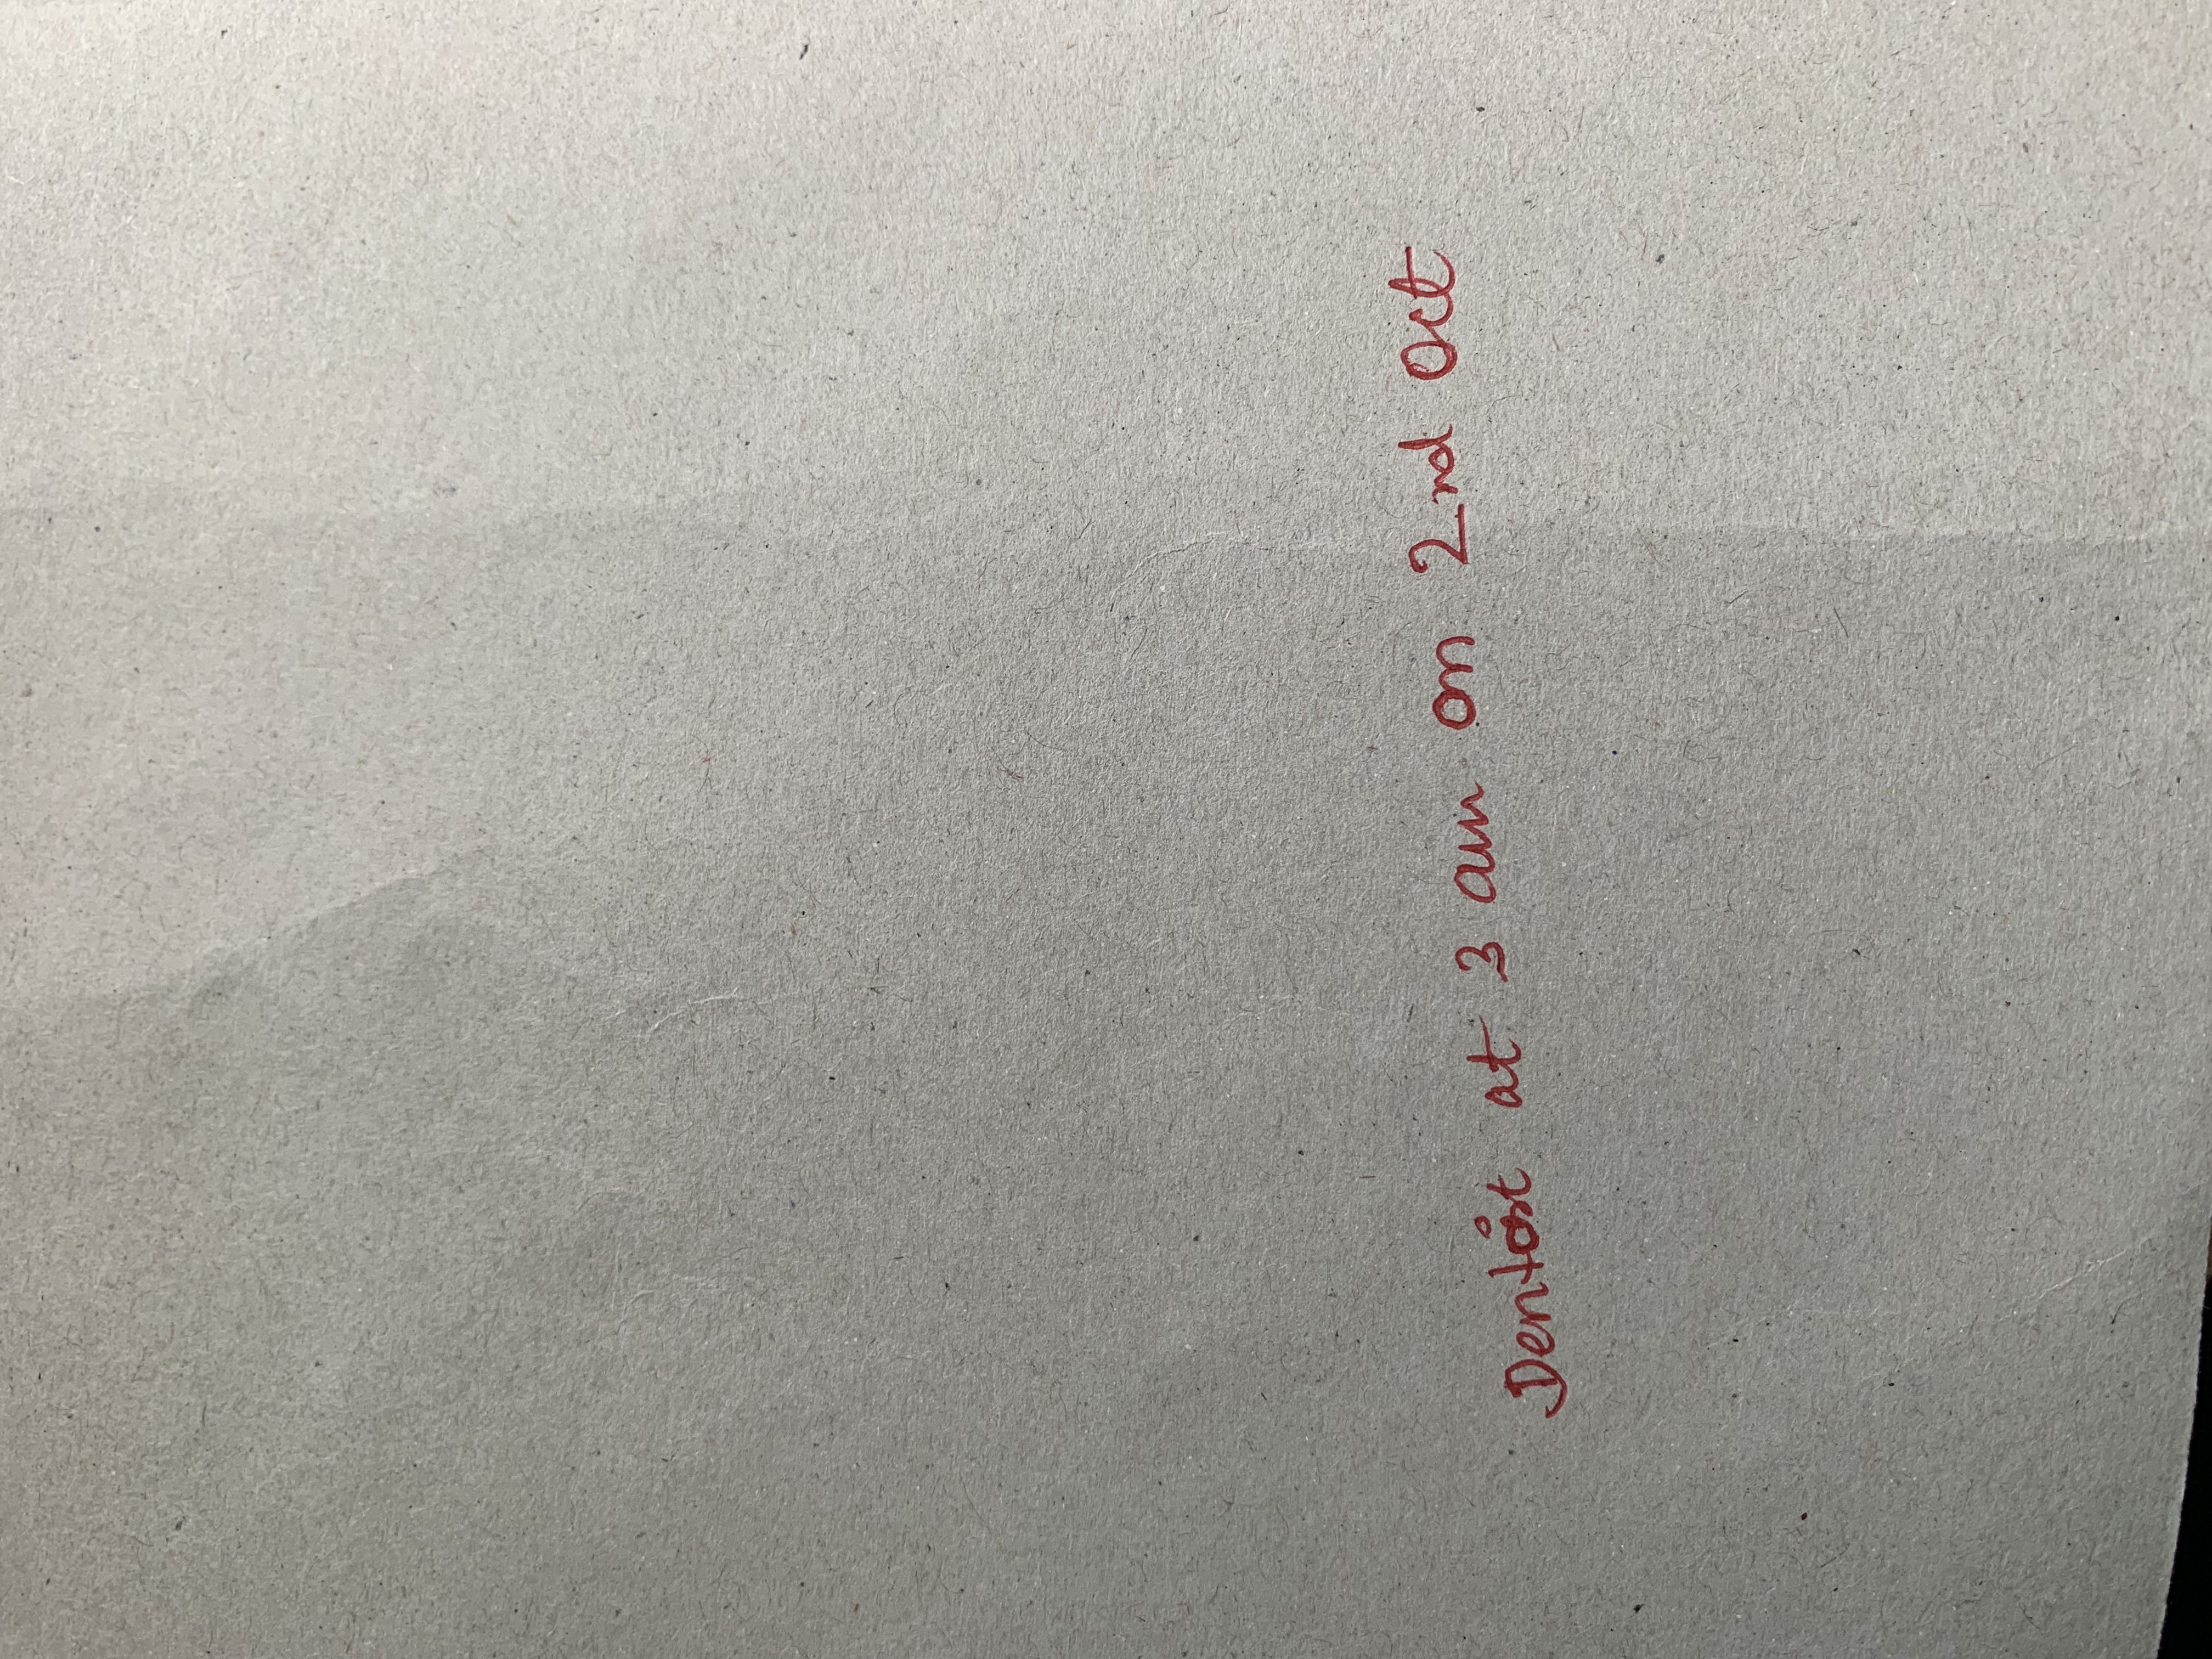 Dentist at 3 am on 2nd Oct